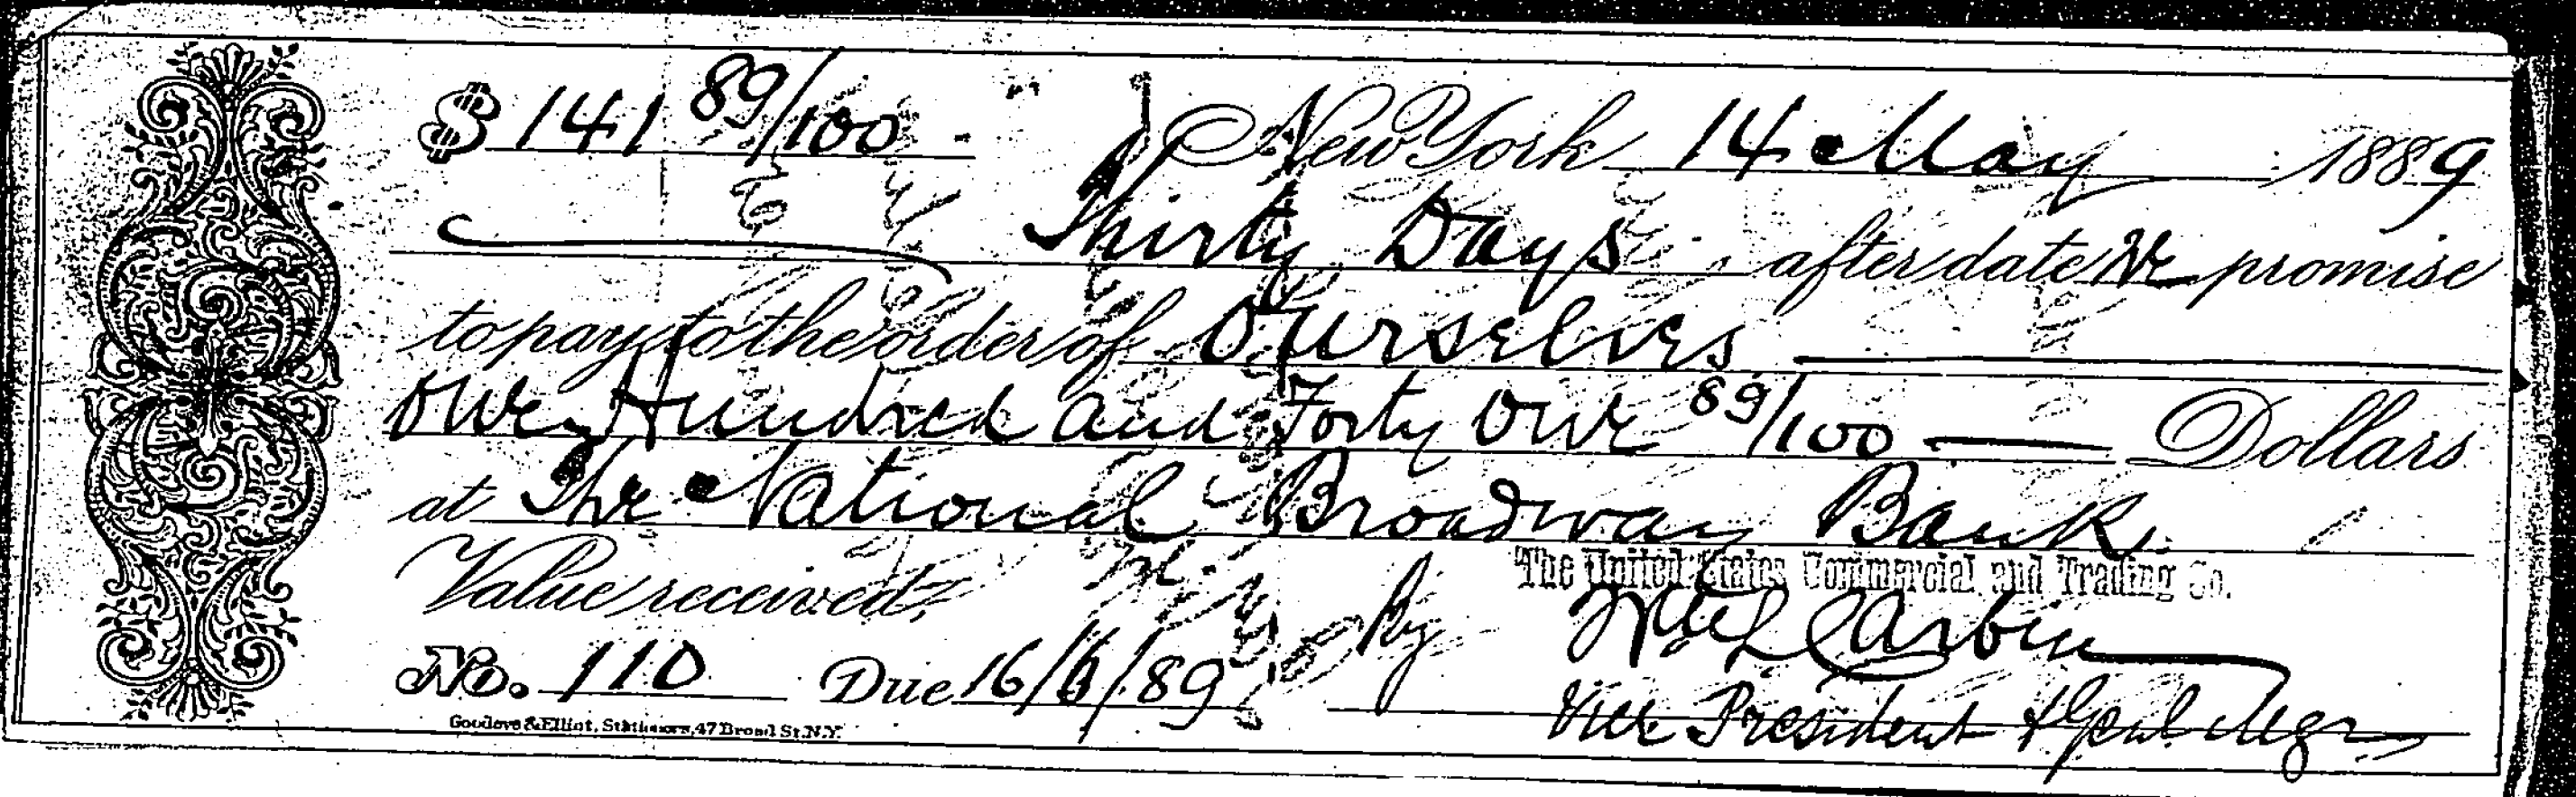 $ 141 89/100 New York 14 May 1889
Thirty Days after date We promise
to pay to the order of Ourselves
One Hundred and Forty One 89/100 Dollars
at The National Broadway Bank
Value received,
The United States Commercial and Trading Co.
By Wm L Carbin
No. 110 Due 16/6/89
Vice President & Genl Mgr
Goodeve & Elliot, Stationers, 47 Broad St. N.Y.